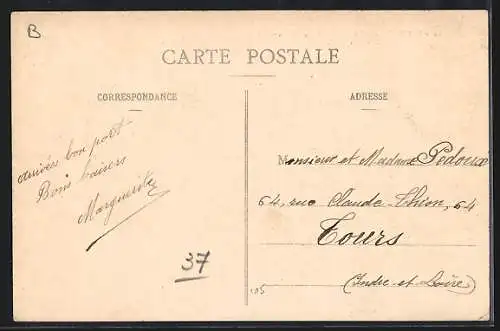 B
CARTE POSTALE
CORRESPONDANCE
arrivées bon port
Bons baisers
Marguerite
37
ADRESSE
Monsieur et Madame Pedoux
64, rue Claude-Thion, 64
Tours
(Indre-et-Loire)
105